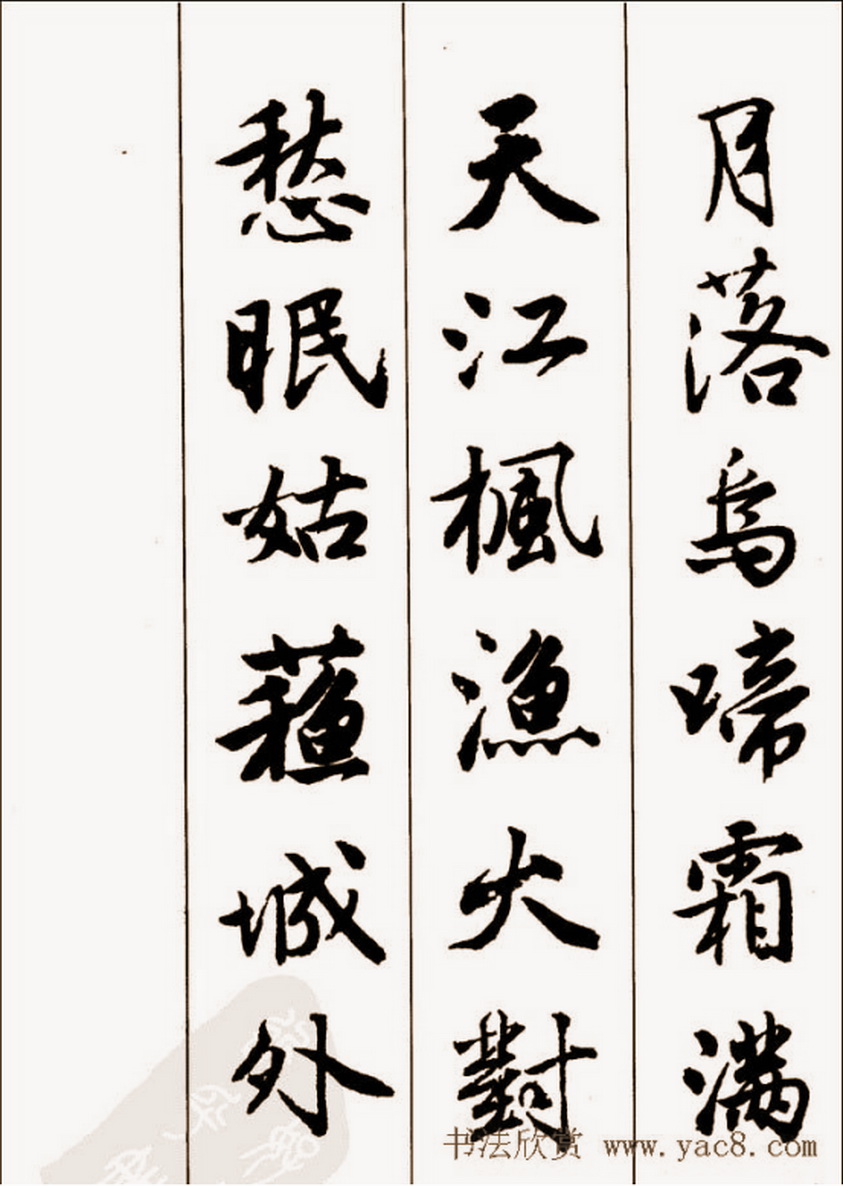 月落烏啼霜満
天江楓漁火對
愁眠姑蘓城外
书法欣赏 www.yac8.com